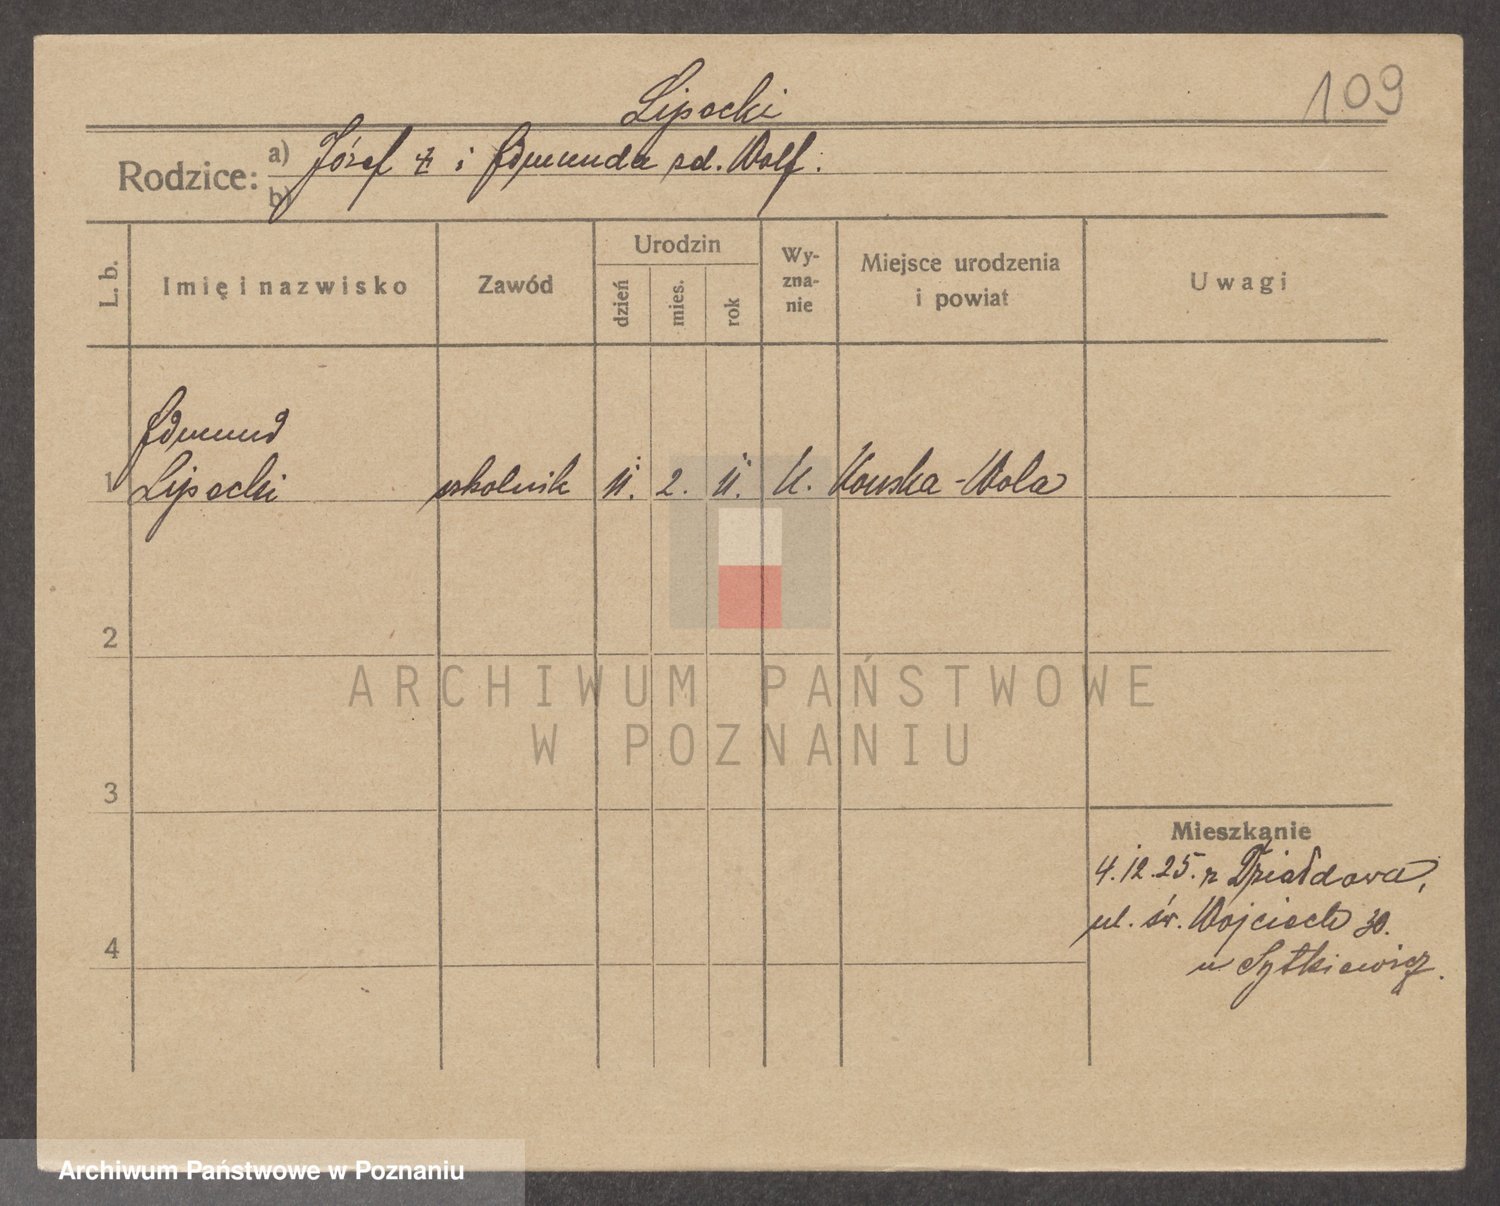 109
Lipecki
Rodzice: a) Józef i Edmunda zd. Wolf.
b)
L. b.
Imię i nazwisko
Zawód
Urodzin
dzień
mies.
rok
Wy-
zna-
nie
Miejsce urodzenia
i powiat
Uwagi
Edmund
1 Lipecki szkolnik 11. 2. 11. K. Wola
2
3
4
Mieszkanie
4.12.25. z Działdowa,
ul. św. Wojciech 30.
u
ARCHIWUM PAŃSTWOWE
W POZNANIU
Archiwum Państwowe w Poznaniu